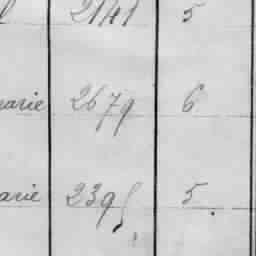 2141 5
arie 2679 6
arie 2395 5.